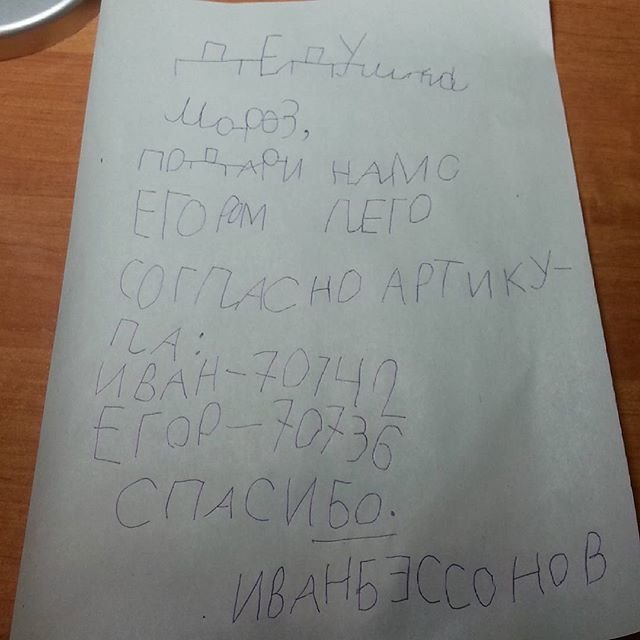 ДЕДУшка
МОРОЗ,
ПОДАРИ НАМ С
ЕГОРОМ ЛЕГО
СОГЛАСНО АРТИКУ-
ЛА:
ИВАН-70742
ЕГОР-70736
СПАСИБО.
ИВАН БЕССОНОВ